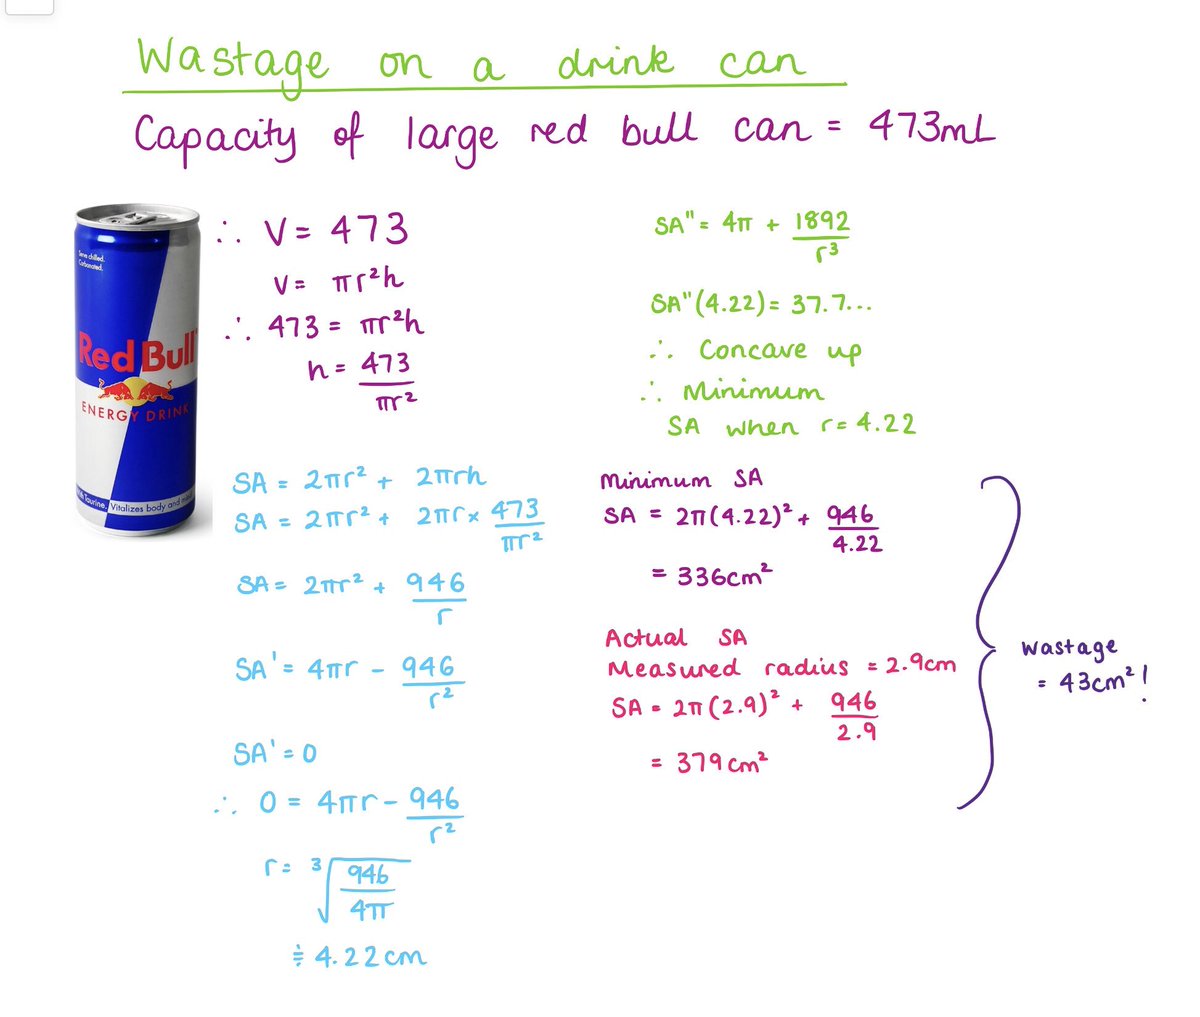 Wastage on a drink can
Capacity of large red bull can = 473mL
Serve chilled.
Carbonated.
Red Bull
ENERGY DRINK
Taurine. Vitalizes body and
∴ V = 473
V = πr²h
∴ 473 = πr²h
h = 473/πr²
SA = 2πr² + 2πrh
SA = 2πr² + 2πr × 473/πr²
SA = 2πr² + 946/r
SA' = 4πr - 946/r²
SA' = 0
∴ 0 = 4πr - 946/r²
r = ³√(946/4π)
≑ 4.22cm
SA" = 4π + 1892/r³
SA"(4.22) = 37.7...
∴ Concave up
∴ Minimum
SA when r = 4.22
Minimum SA
SA = 2π(4.22)² + 946/4.22
= 336cm²
Actual SA
Measured radius = 2.9cm
SA = 2π(2.9)² + 946/2.9
= 379cm²
wastage
= 43cm²!